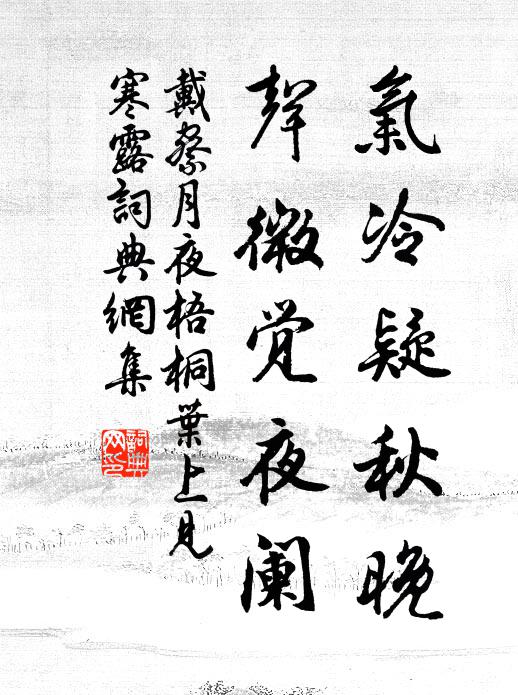 氣冷疑秋晚
聲微覺夜阑
戴察月夜梧桐葉上見
寒露詞典網集
詞典网印